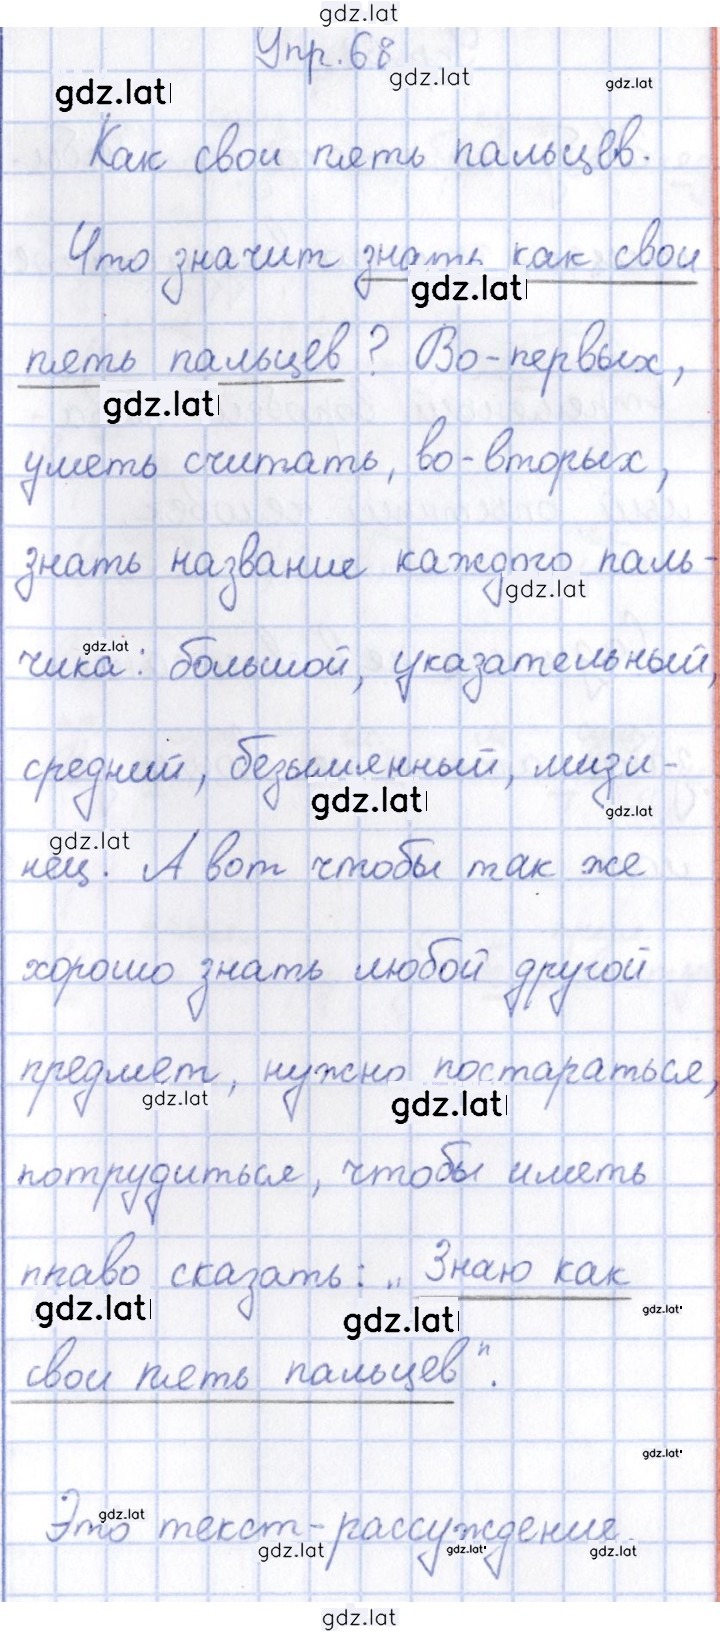 gdz.lat
Упр. 68
gdz.lat
gdz.lat
gdz.lat
Как свои пять пальцев.
Что значит знать как свои
gdz.lat
пять пальцев? Во-первых,
gdz.lat
уметь считать, во-вторых,
знать название каждого паль-
gdz.lat
gdz.lat
чика: большой, указательный,
средний, безымянный, мизи-
gdz.lat
gdz.lat
gdz.lat
нец. А вот чтобы так же
хорошо знать любой другой
предмет, нужно постараться,
gdz.lat
gdz.lat
потрудиться, чтобы иметь
право сказать: „Знаю как
gdz.lat
gdz.lat
gdz.lat
свои пять пальцев".
gdz.lat
gdz.lat
Это текст-рассуждение.
gdz.lat
gdz.lat
gdz.lat
gdz.lat